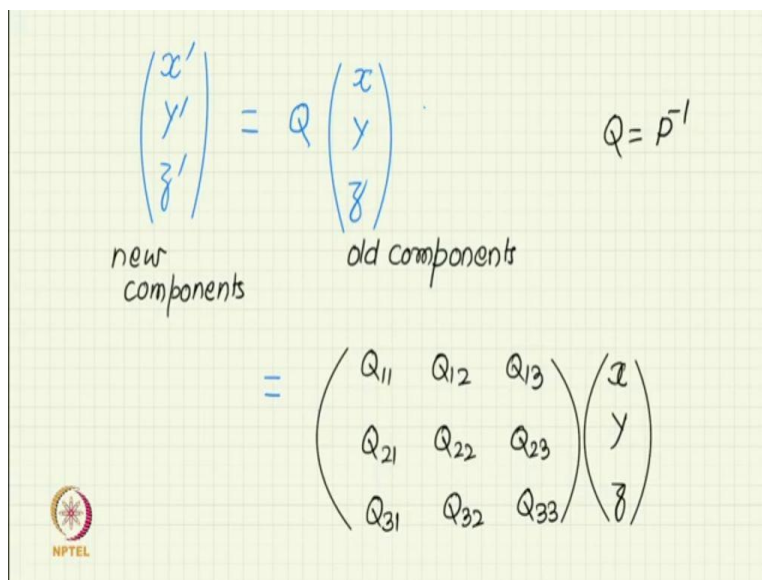 x′
y′ = Q x
z′ y
z
Q = P⁻¹
new components
old components
= Q₁₁ Q₁₂ Q₁₃ x
Q₂₁ Q₂₂ Q₂₃ y
Q₃₁ Q₃₂ Q₃₃ z
NPTEL